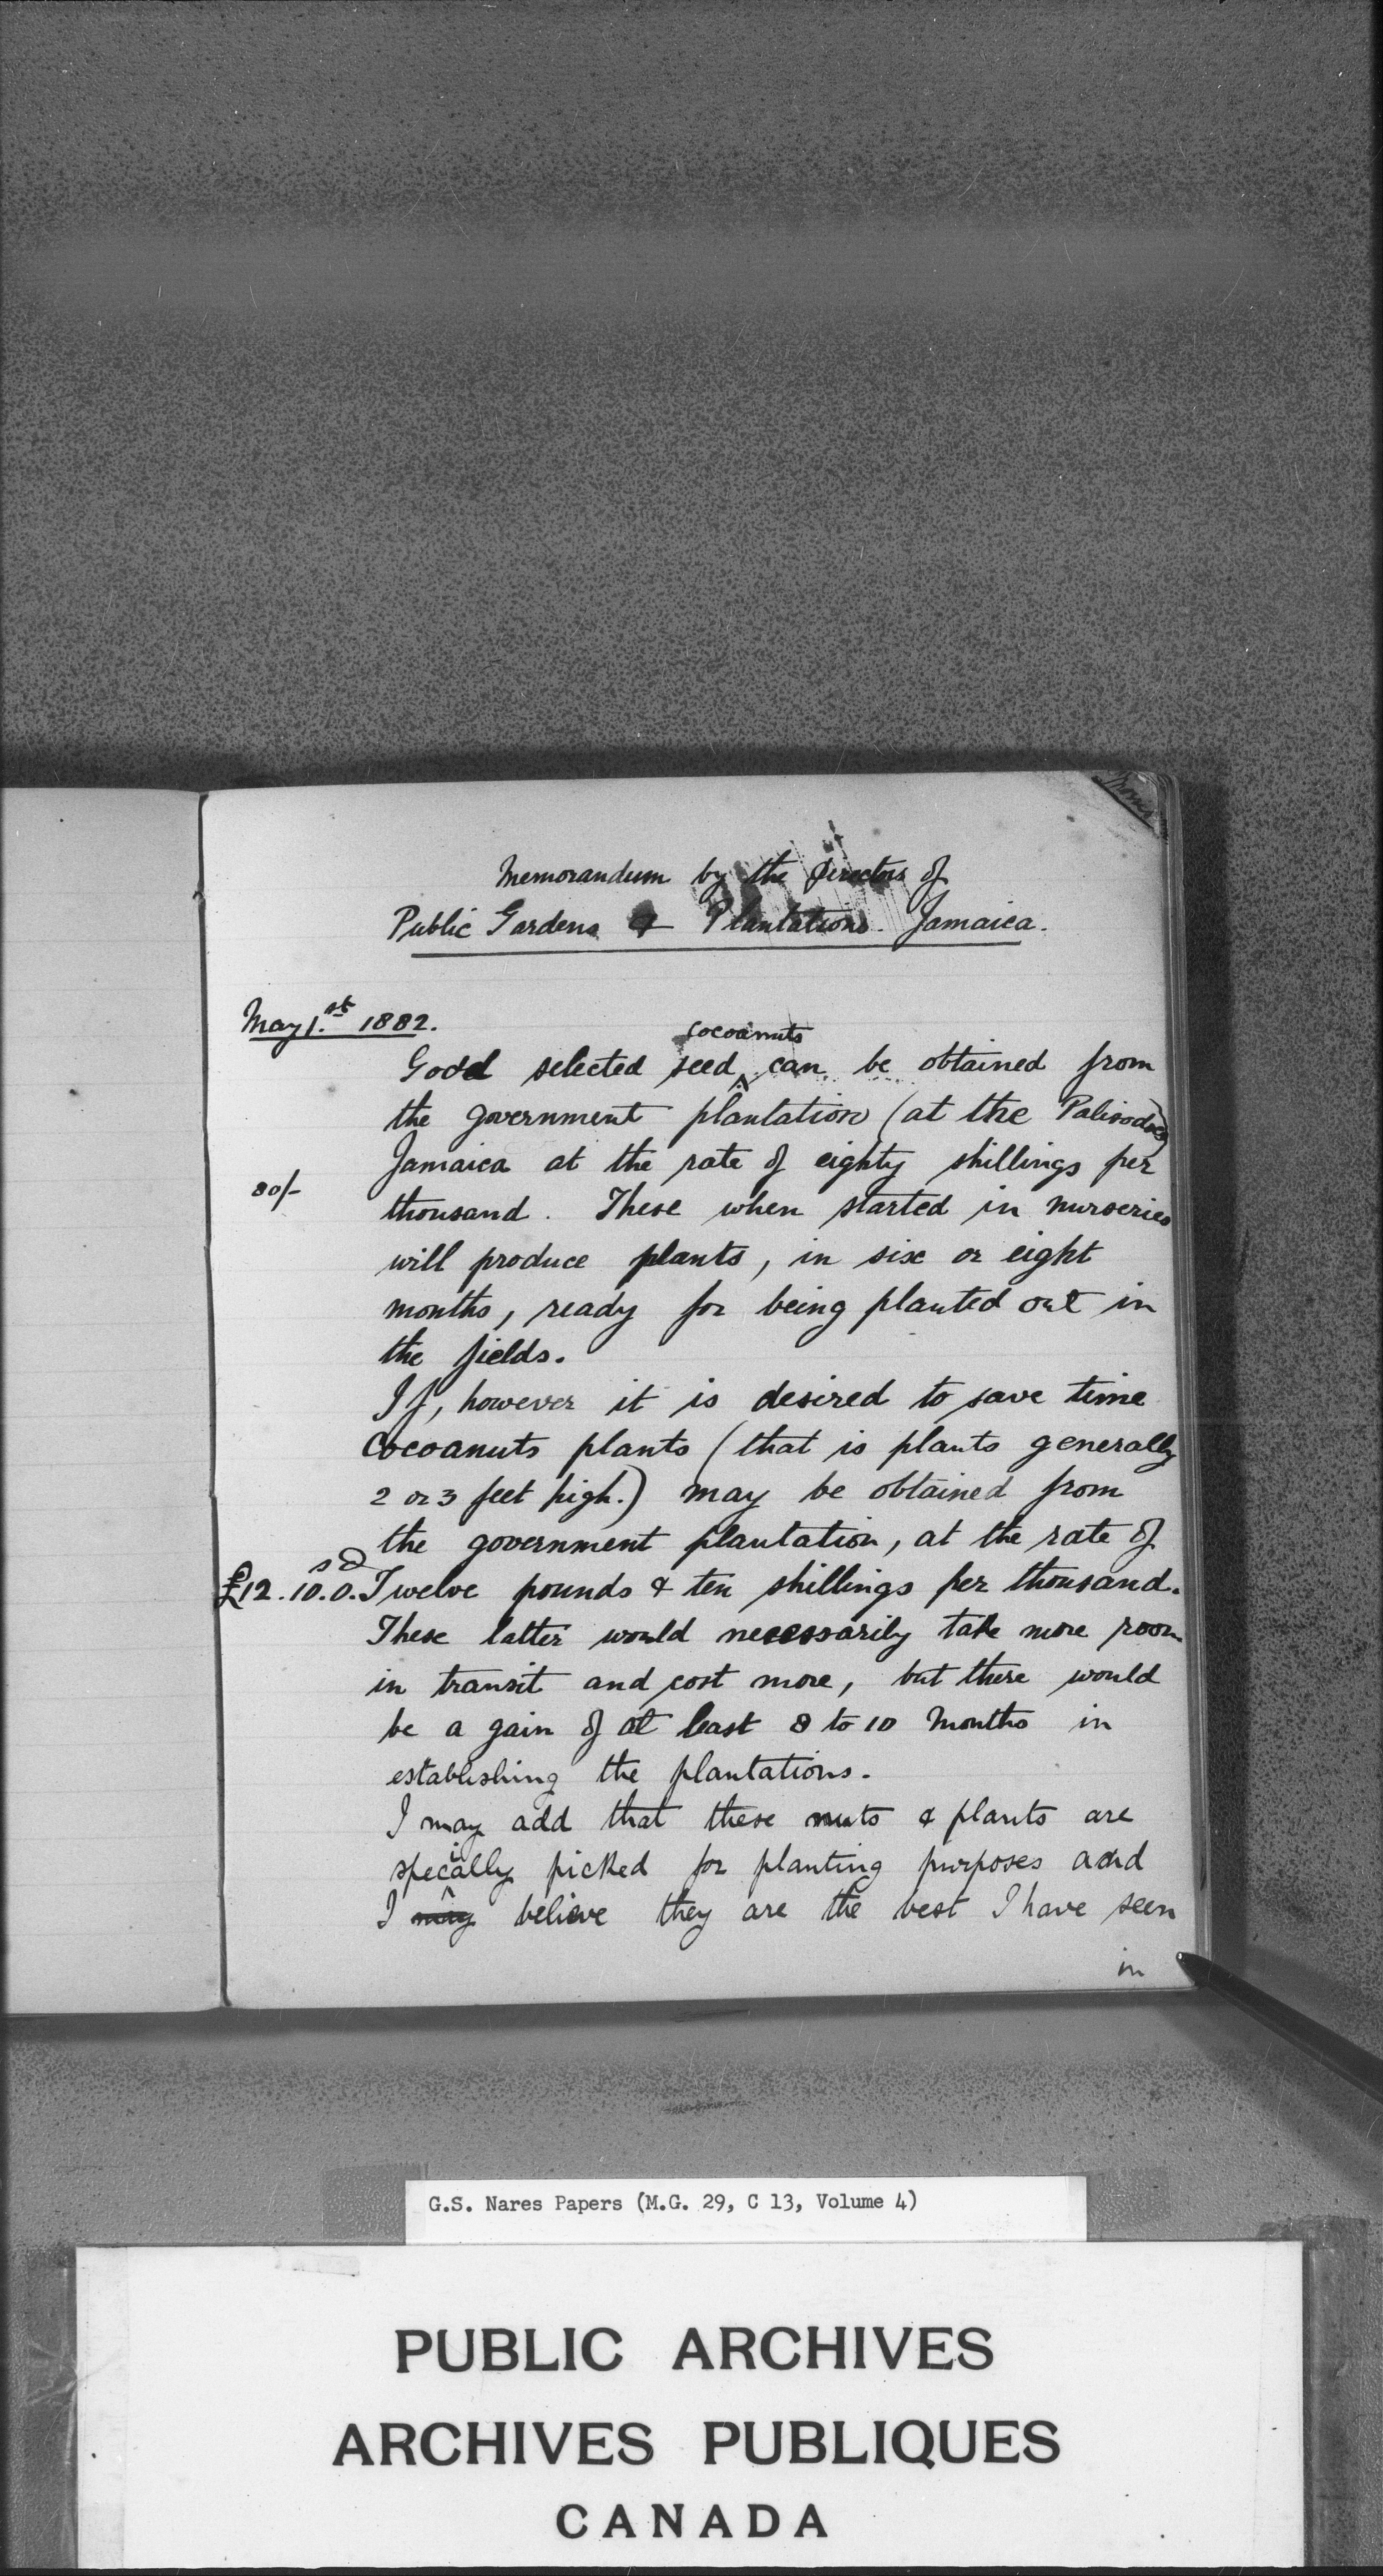 Memorandum by the Director of
Public Gardens & Plantations. Jamaica.
May 1.st 1882.
cocoanuts
Good selected seed ^ can be obtained from
the government plantation (at the Palisadoes)
Jamaica at the rate of eighty shillings per
80/-
thousand. These when started in nurseries
will produce plants, in six or eight
months, ready for being planted out in
the fields.
If, however it is desired to save time
Cocoanuts plants (that is plants generally
2 or 3 feet high.) may be obtained from
the government plantation, at the rate of
£12. 10s. 0d. Twelve pounds & ten shillings per thousand.
These latter would necessarily take more room
in transit and cost more, but there would
be a gain of at least 8 to 10 Months in
establishing the plantations.
I may add that these nuts & plants are
specially picked for planting purposes and
I may believe they are the best I have seen
in
G.S. Nares Papers (M.G. 29, C 13, Volume 4)
PUBLIC ARCHIVES
ARCHIVES PUBLIQUES
CANADA